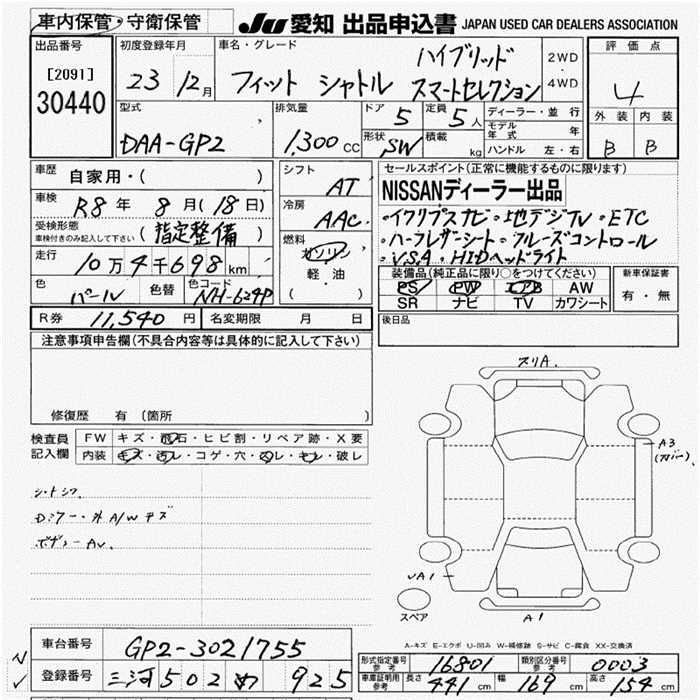 車内保管・守衛保管 JU 愛知 出品申込書 JAPAN USED CAR DEALERS ASSOCIATION
出品番号 初度登録年月 車名・グレード 評価点
[2091] 23 12月 フィット シャトル ハイブリッド 2WD
30440 スマートセレクション ・4WD 4
型式 排気量 ドア 5 定員 5人 ディーラー・並行 外装 内装
DAA-GP2 1,300 CC 形状 SW 積載 kg モデル年式 年 B B
ハンドル 左・右
車歴 自家用・( ) シフト AT セールスポイント(正常に機能するものに限ります)
車検 R8年 8月(18日) 冷房 AAC NISSANディーラー出品
受検形態 車検付きのみ記入して下さい (指定整備) ・イクリプスナビ・地デジTV・ETC
走行 10万4千698km 燃料 ガソリン ・ハーフレザーシート・クルーズコントロール
軽・油 ・VSA・HIDヘッドライト
( )
色 パール 色替 色コード NH-624P 装備品(純正品に限り○をつけてください) 新車保証書
PS PW エアB AW 有・無
SR ナビ TV カワシート
R券 11,540円 名変期限 月 日 後日品
注意事項申告欄(不具合内容等は具体的に記入して下さい)
修復歴 有(箇所
検査員 FW キズ・飛石・ヒビ割・リペア跡・X要
記入欄 内装 キズ・汚レ・コゲ・穴・凹レ・キレ・破レ
スリA.
A3
(カバー)
シートシワ
Dミラー・外A/Wキズ
ボディーAU.
UA1
スペア
A1
A-キズ E-エクボ U-凹み W-補修跡 S-サビ C-腐食 XX-交換済
車台番号 GP2-3021755
登録番号 三河 502 め 925
形式指定番号 参考 16801 類別区分番号 参考 0003
車庫証明用 参考 長さ 441cm 幅 169cm 高さ 154cm